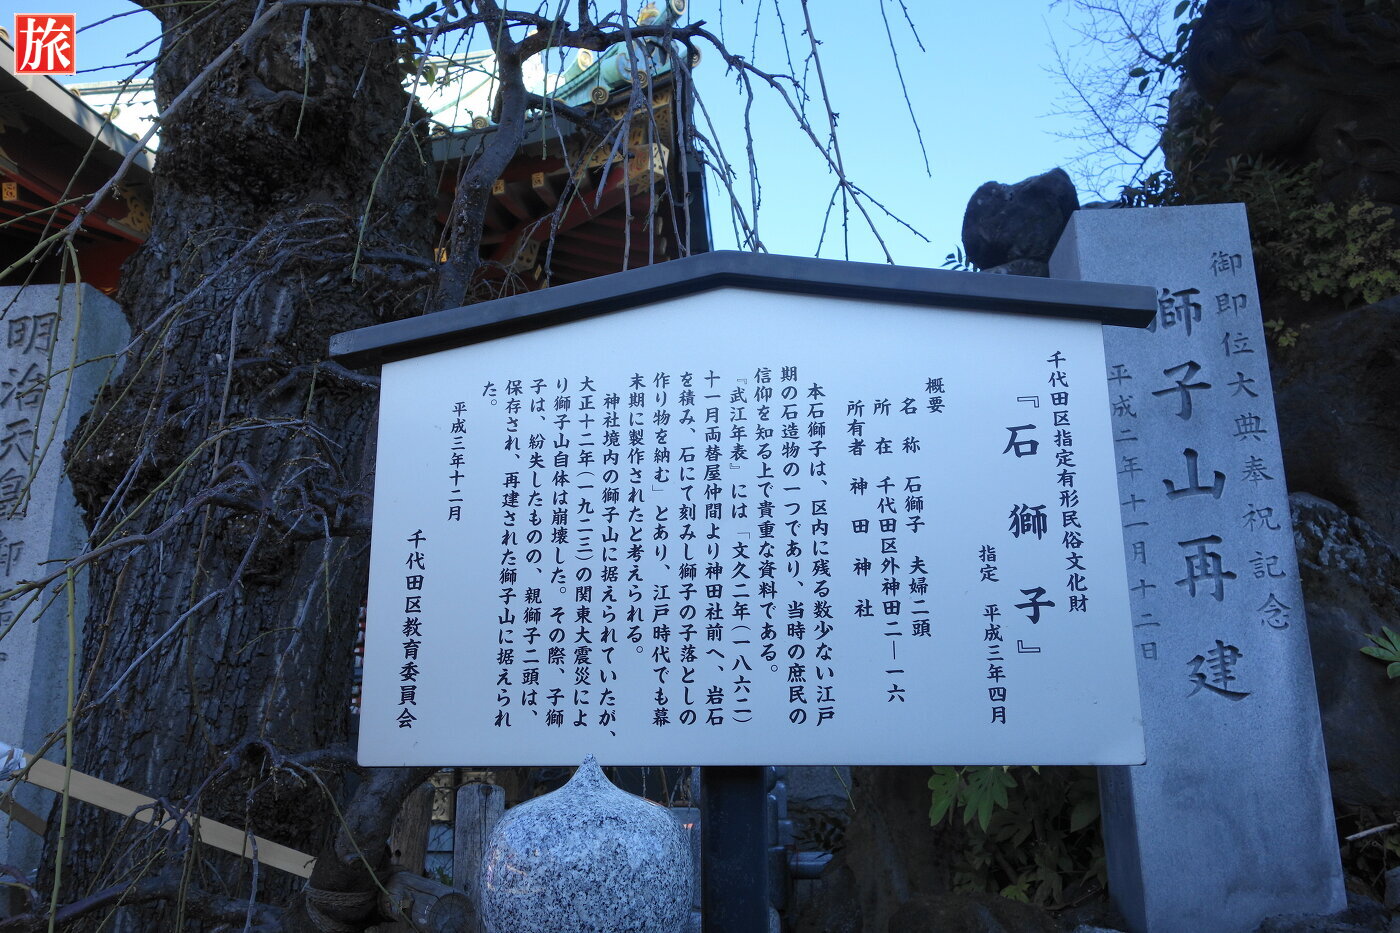 旅
千代田区指定有形民俗文化財
『石獅子』
指定 平成三年四月
概要
名称 石獅子 夫婦二頭
所在 千代田区外神田二―一六
所有者 神田神社
本石獅子は、区内に残る数少ない江戸
期の石造物の一つであり、当時の庶民の
信仰を知る上で貴重な資料である。
『武江年表』には「文久二年（一八六二）
十一月両替屋仲間より神田社前へ、岩石
を積み、石にて刻みし獅子の子落としの
作り物を納む」とあり、江戸時代でも幕
末期に製作されたと考えられる。
神社境内の獅子山に据えられていたが、
大正十二年（一九二三）の関東大震災によ
り獅子山自体は崩壊した。その際、子獅
子は、紛失したものの、親獅子二頭は、
保存され、再建された獅子山に据えられ
た。
平成三年十二月
千代田区教育委員会
御即位大典奉祝記念
獅子山再建
平成二年十一月十二日
明治天皇御